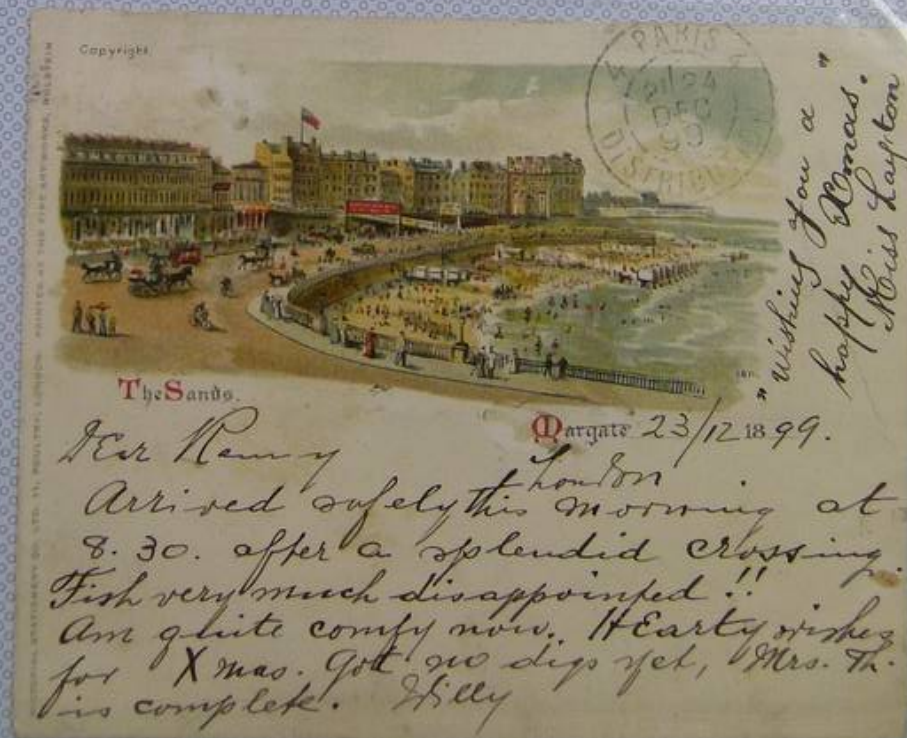 Copyright.
PARIS
24
DEC
DISTRIBUTION
"Wishing you a
happy Xmas."
Miss Layton
The Sands.
Margate 23/12 1899.
London
Dear
Arrived safely this morning at
8.30. after a splendid crossing.
Fish very much disappointed !!
Am quite comfy now. Hearty wishes
for Xmas. Got no digs yet, Mrs. Th.
is complete. Willy